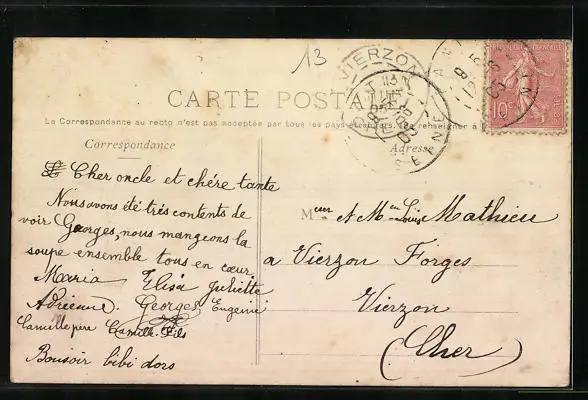 13
CARTE POSTALE
La Correspondance au recto n'est pas acceptée par tous les pays étrangers. (Se renseigner à la
Correspondance
Adresse
Cher oncle et chère tante
Nous avons été très contents de
voir Georges, nous mangeons la
soupe ensemble tous en cœur
Maria Elisa Juliette
Adrienne. Georges Eugenie
Camille père Camille Fils
Bonsoir bibi dors
Meur et Me Louis Mathieu
a Vierzon Forges
Vierzon
(Cher)
VIERZON
SEINE
REPUBLIQUE FRANÇAISE
10c
POSTES